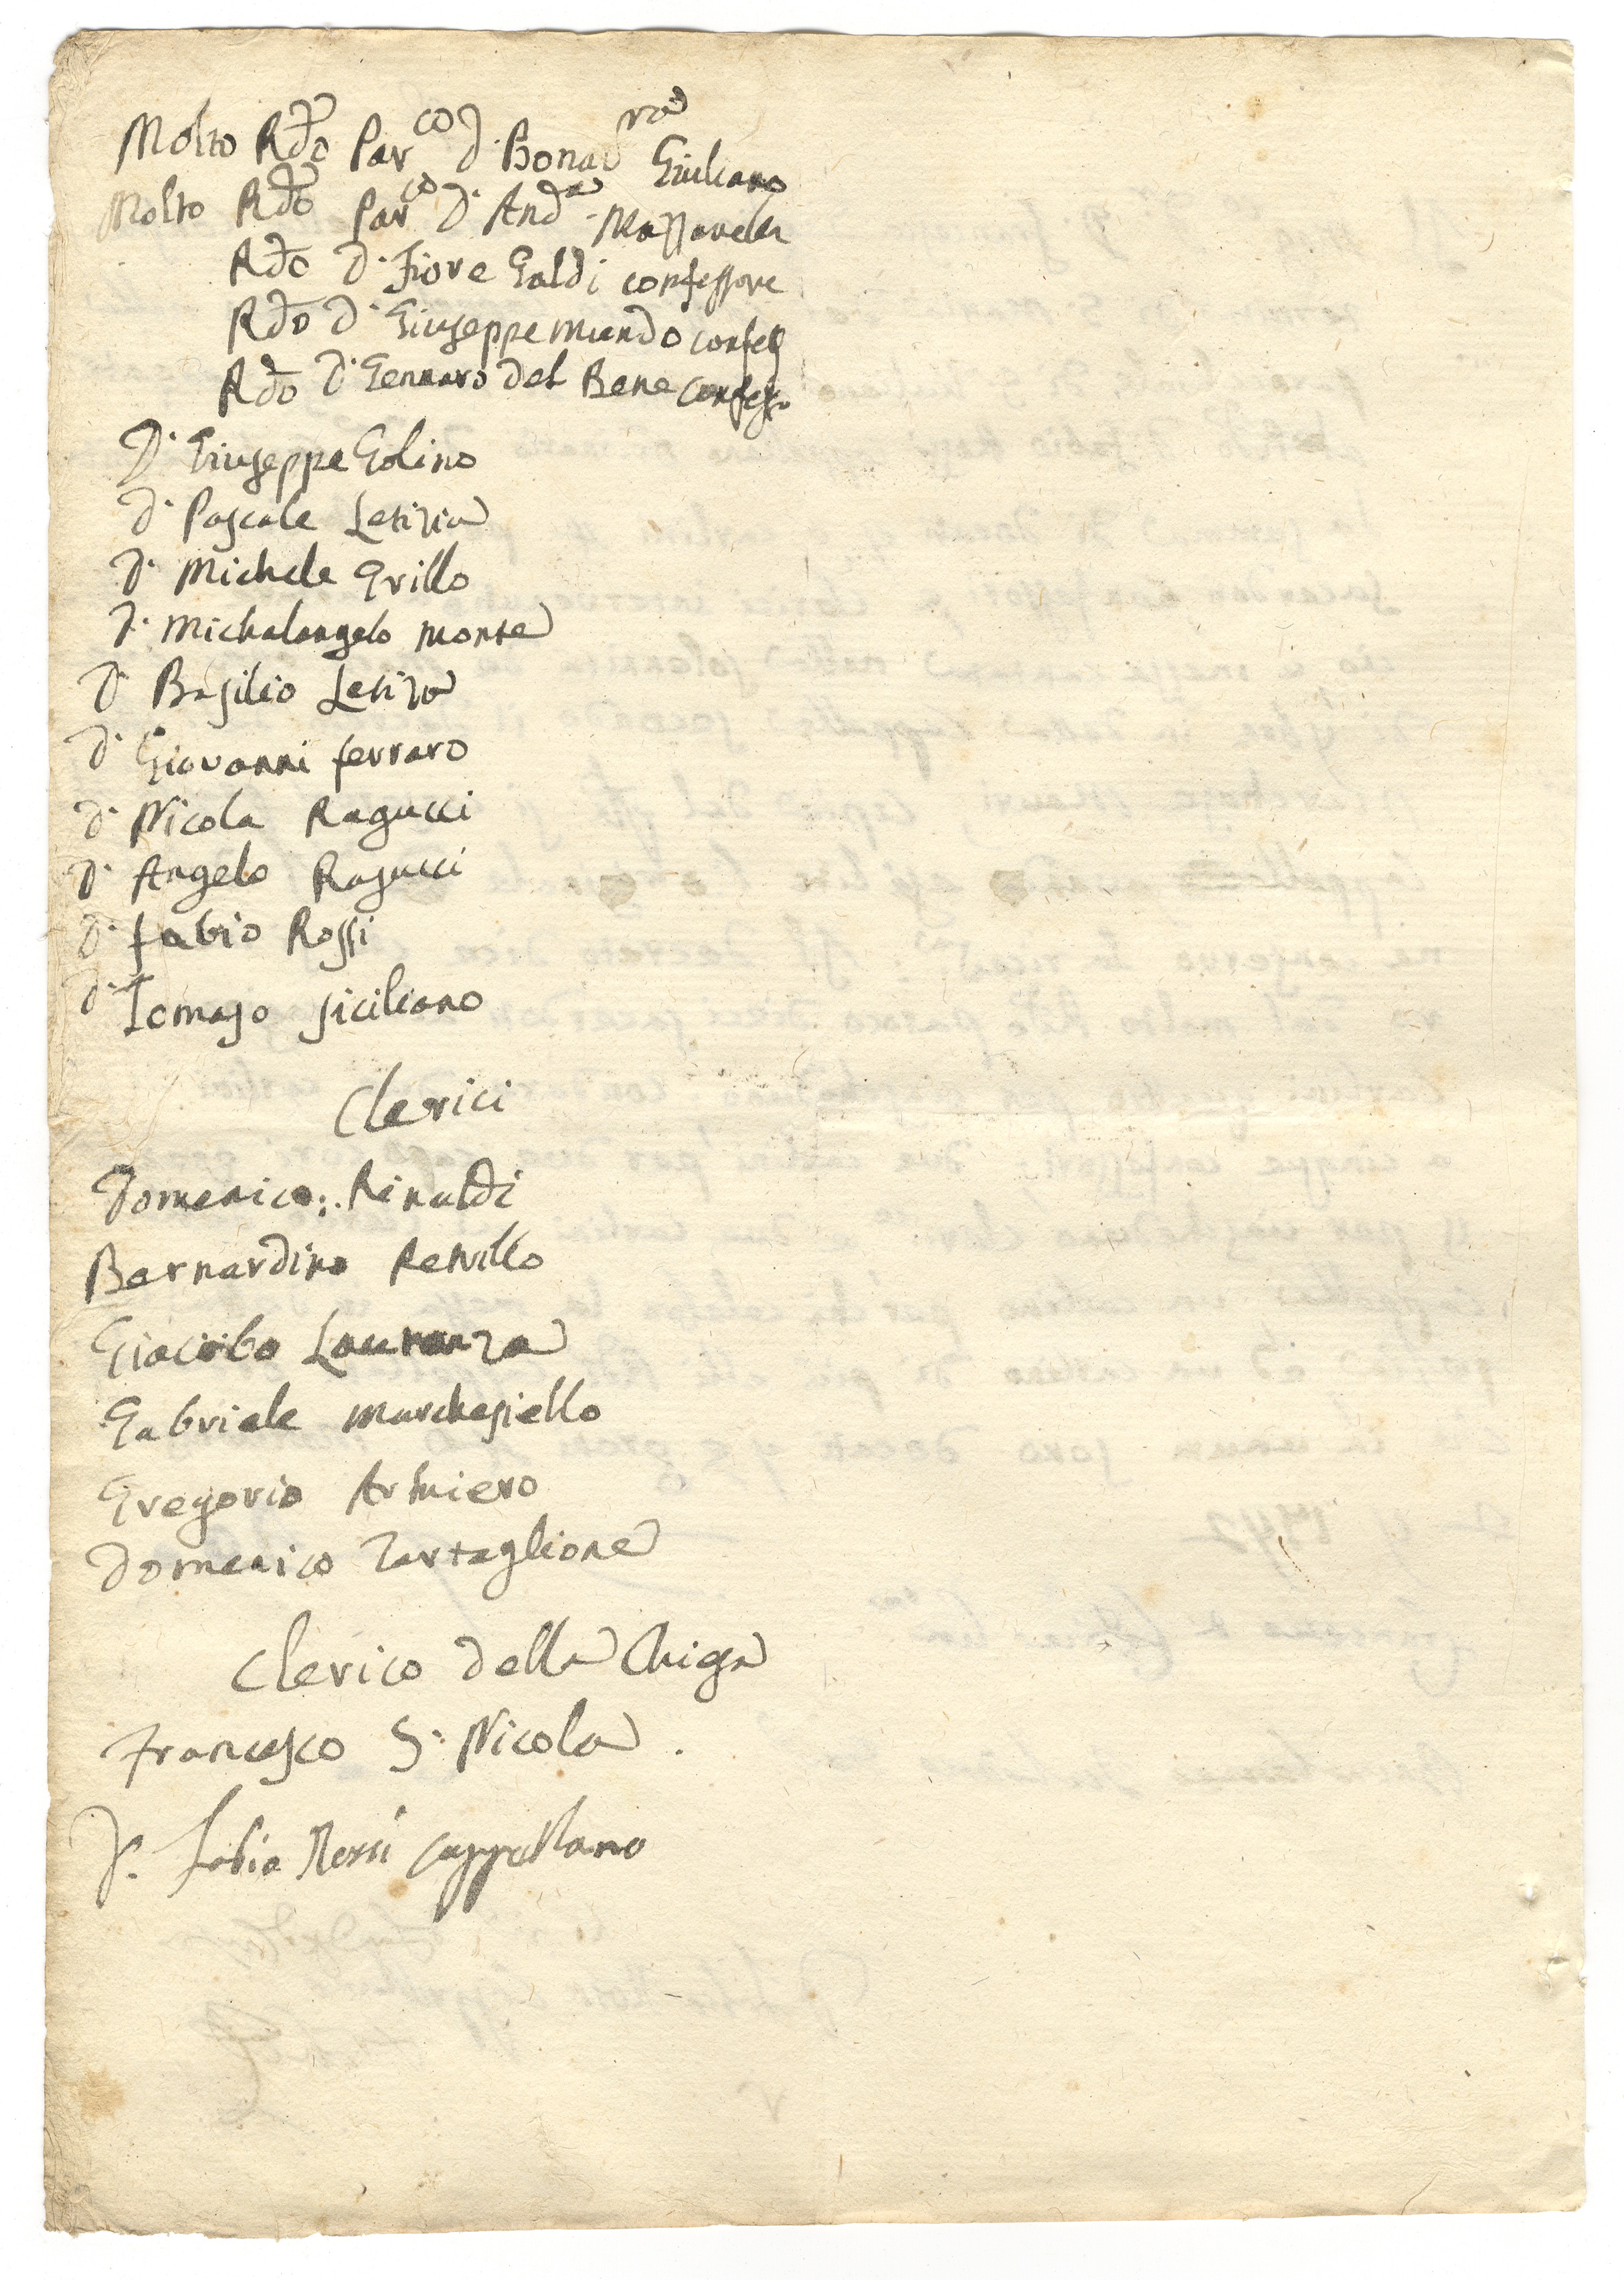 Molto Rdo Parco D. Bonavra Giuliano
Molto Rdo Parco D. Anda Mazzarella
Rdo D. Fiore Galdi confessore
Rdo D. Giuseppe Mundo confes
Rdo D. Gennaro del Bene confess.
D. Giuseppe Golino
D. Pascale Letizia
D. Michele Grillo
D. Michelangelo Monte
D. Basilio Letizia
D. Giovanni Ferraro
D. Nicola Ragucci
D. Angelo Ragucci
D. Fabio Rossi
D. Tomaso Siciliano
Clerici
Domenico Rinaldi
Bernardino
Giacobo Lauranza
Gabriele Marchesiello
Gregorio
Domenico Tartaglione
Clerico della Chiesa
Francesco S. Nicola.
D. Fabio Rossi Cappellano